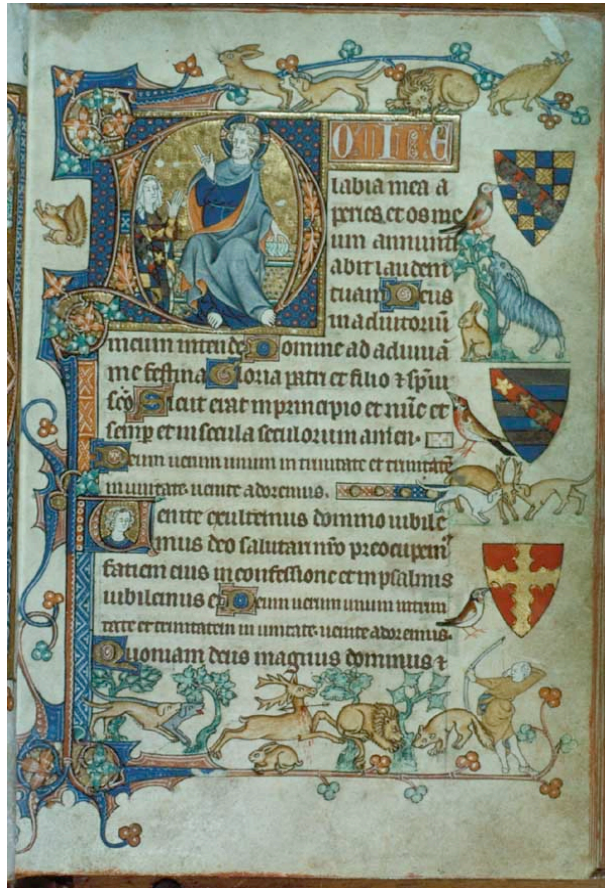 OMINE
labia mea a
peries et os me
um annunti
abit laudem
tuam Deus
in adiutoriū
meum intende Domine ad adiuuā
me festina Gloria patri et filio ⁊ sp̄ui
sc̄o Sicut erat in principio et nūc et
semp̱ et in secula seculorum amen.
Deum uerum unum in trinitate et trinitatē
in unitate. uenite adoremus.
Uenite exultemus domino iubile
mus deo salutari nr̄o preocupem᷒
faciem eius in confessione et in psalmis
iubilemus ei Deum uerum unum in trini
tate et trinitatem in unitate. uenite adoremus.
Quoniam deus magnus dominus ⁊